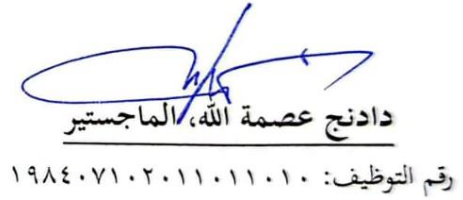 دادنج عصمة الله، الماجستير
رقم التوظيف: ١٩٨٤٠٧١٠٢٠١١٠١١٠١٠